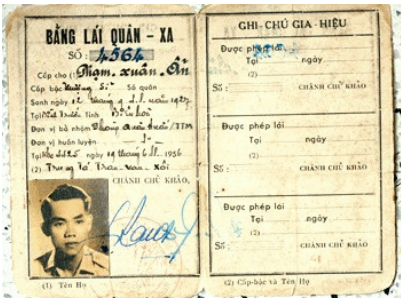 BẰNG LÁI QUÂN - XA
SỐ : 4564
Cấp cho (1) Phạm xuân Ẩn
Cấp bậc Sĩ Số quân
Sanh ngày 12 tháng 9 1927
Tại tỉnh
Đơn vị bổ nhiệm Phòng /TTM
Đơn vị huấn luyện
Tại ngày 19 tháng 6 1956
(2) Trung Tá Trần-văn-
CHÁNH CHỦ KHẢO,
(1) Tên Họ
GHI-CHÚ GIA-HIỆU
Được phép lái
Tại ngày
(2)
Số : CHÁNH CHỦ KHẢO
Được phép lái
Tại ngày
(2)
Số : CHÁNH CHỦ KHẢO
Được phép lái
Tại ngày
(2)
Số : CHÁNH CHỦ KHẢO
(2) Cấp-bậc và Tên Họ